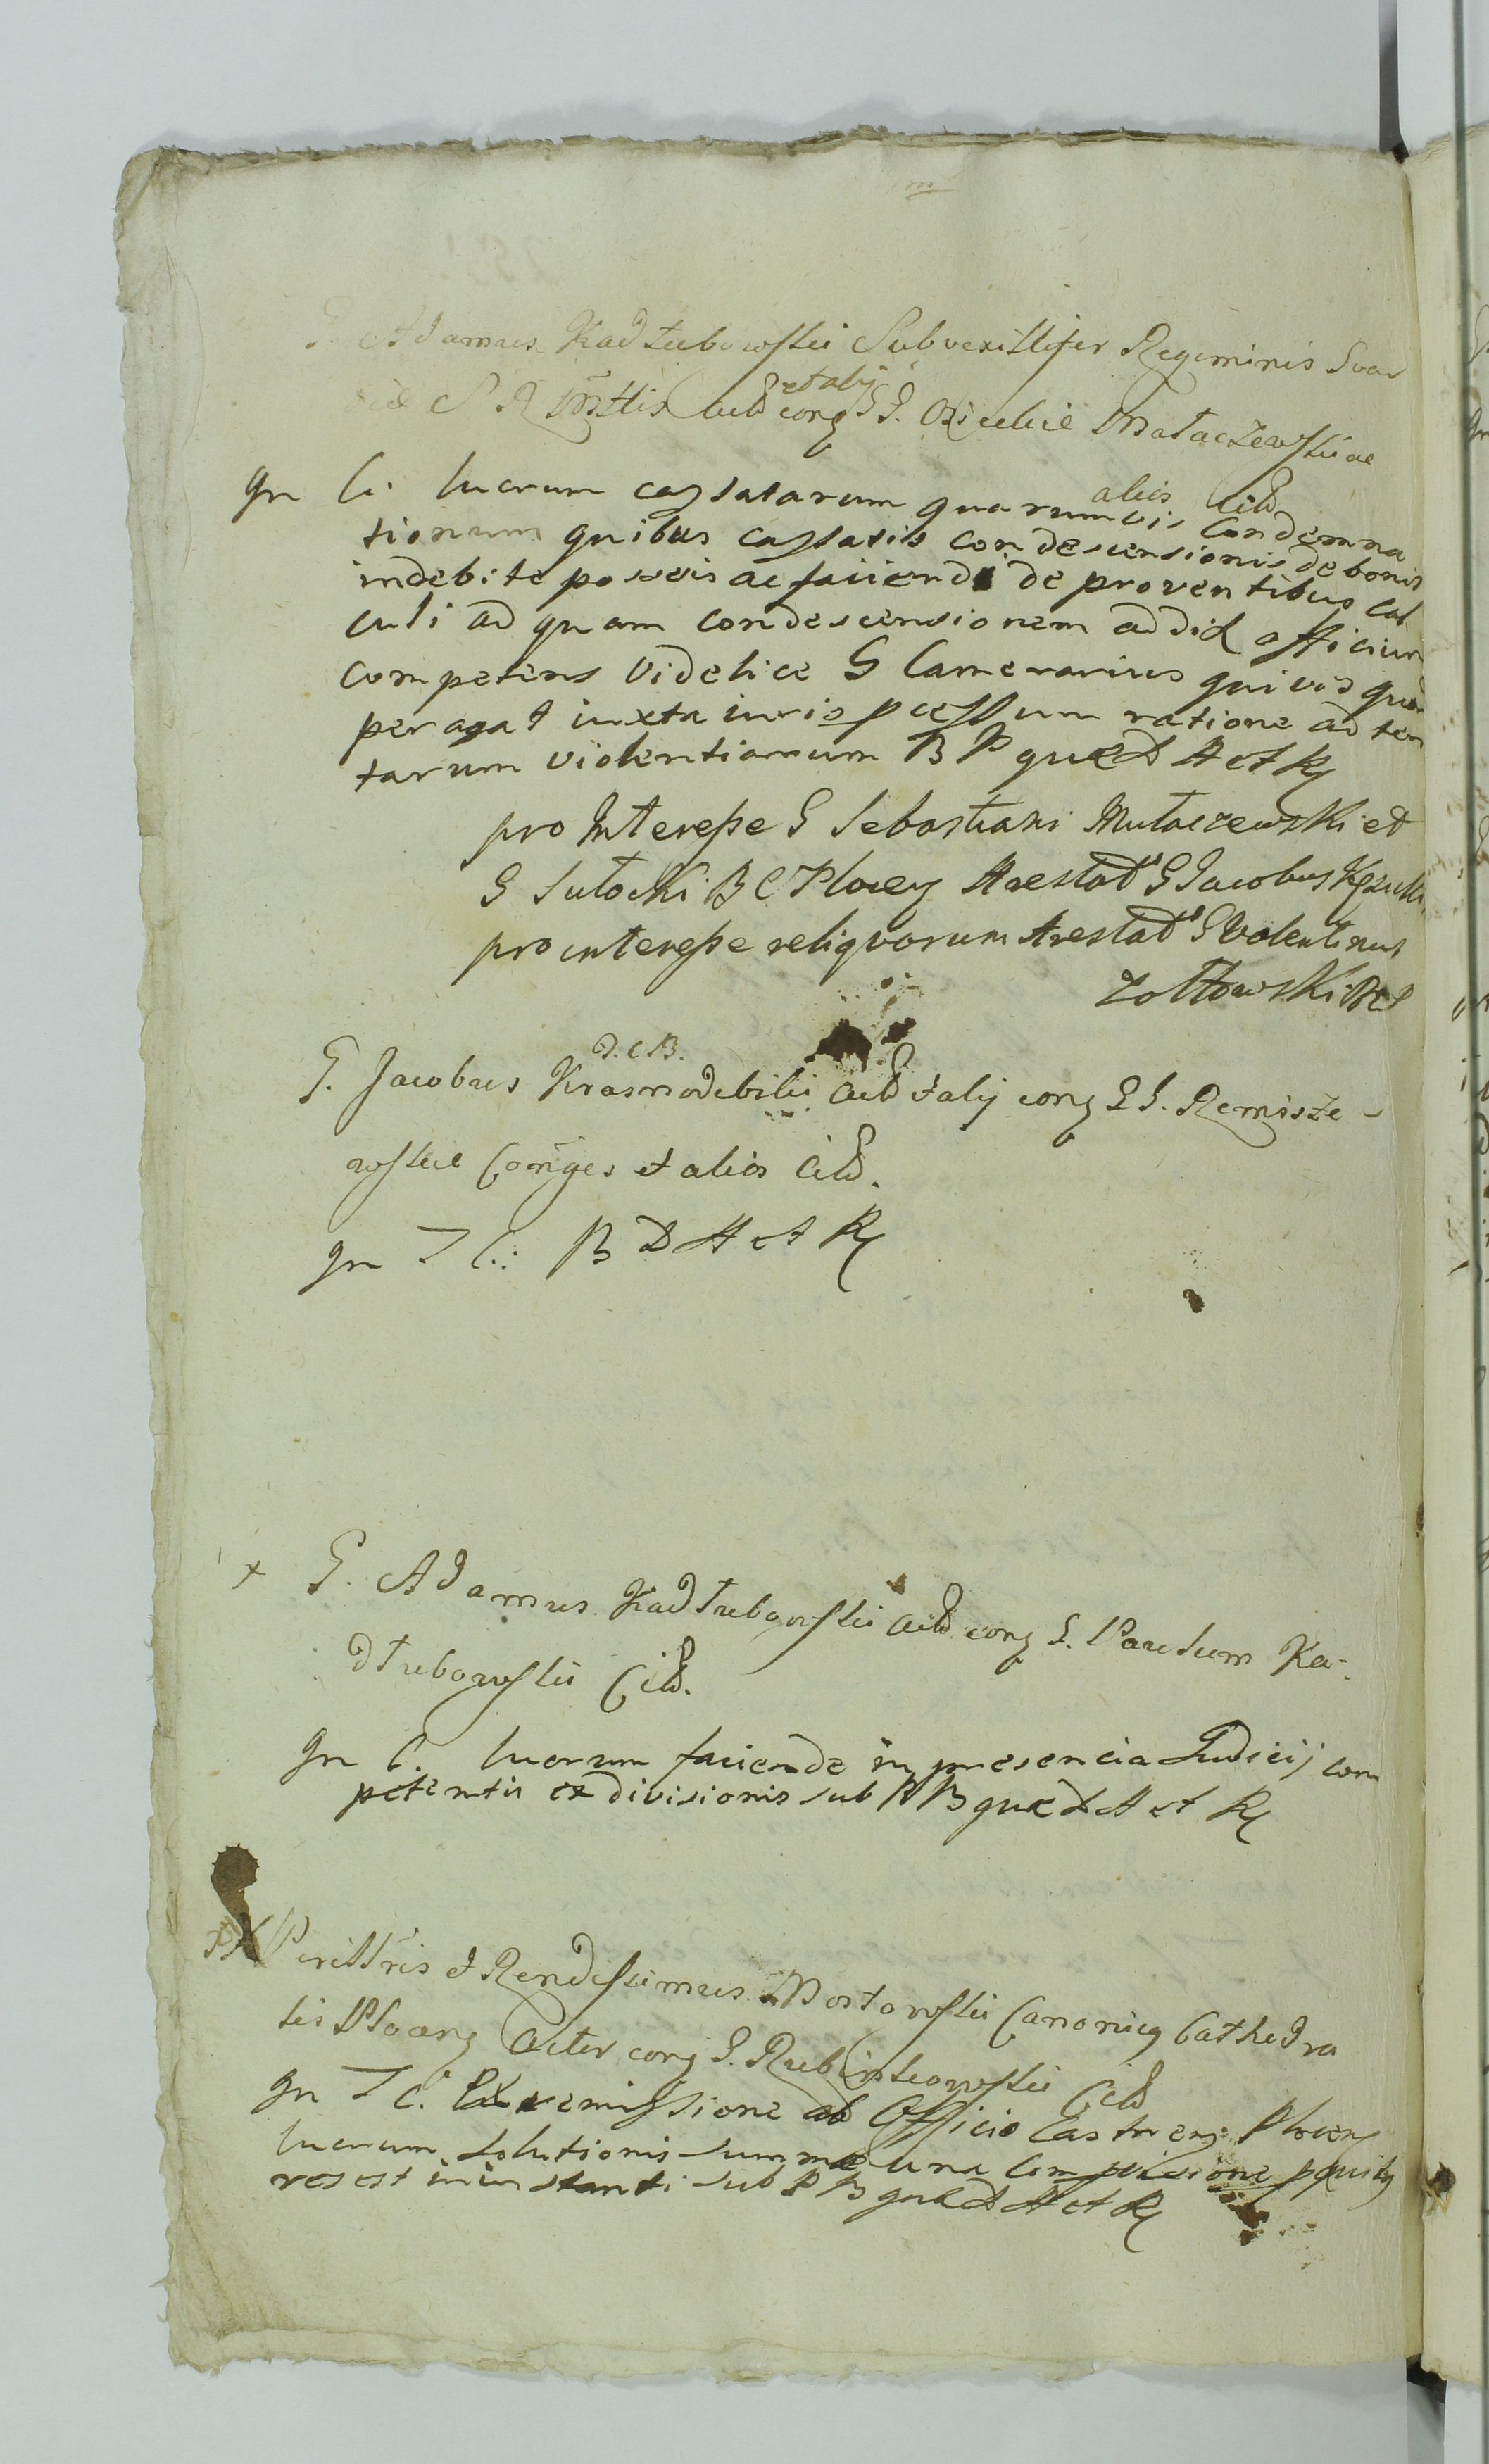 m
G. Adamus Kadłubowski Subvexillifer Regiminis Gvar
diæ S R Mttis Act et alij conq G G. Osieckie Małaczewskiae
alios Citt
Gn C. lucrum cassatarum quarumvis Condemna
tionum quibus cassatis condescensionis de bonis
indebite possessis ac faciendi de proventibus cal
culi ad quam condescensionem addit officium
competens Videlice G Camerarius quivis quod
peragat iuxta iuris pcessum ratione ad ten
tarum violentiarum B P quæ D A et R
pro Interesse G Sebastiani Małaczewski et
G Sutocki B C Plocen Arestat G Jacobus
pro interesse reliqvorum Arestat G Valentinus
Zołtowski B C P
D.C.B.
G. Jacobus Krasnodebski Act et alij conq G G. Remisze-
wskie Coniges et alios Citt.
Gn T C: B D A et R
+ G. Adamus Kadłubowski Act conq G. Paulum Ka-
dłubowski Citt.
Gn C. lucrum faciende in presencia Judicij com
petentis ex divisionis sub P B quæ D A et R
Perillris et Rendissimus Mostowski Canonicq Cathedra
lis Plocenq Actor conq G. Rubinkowski Citt
Gn T C. Ex remissione ab Officio Castren Plocen
lucrum solutionis summæ una Compulsione pquitq
res est in instanti sub P B quæ D A et R